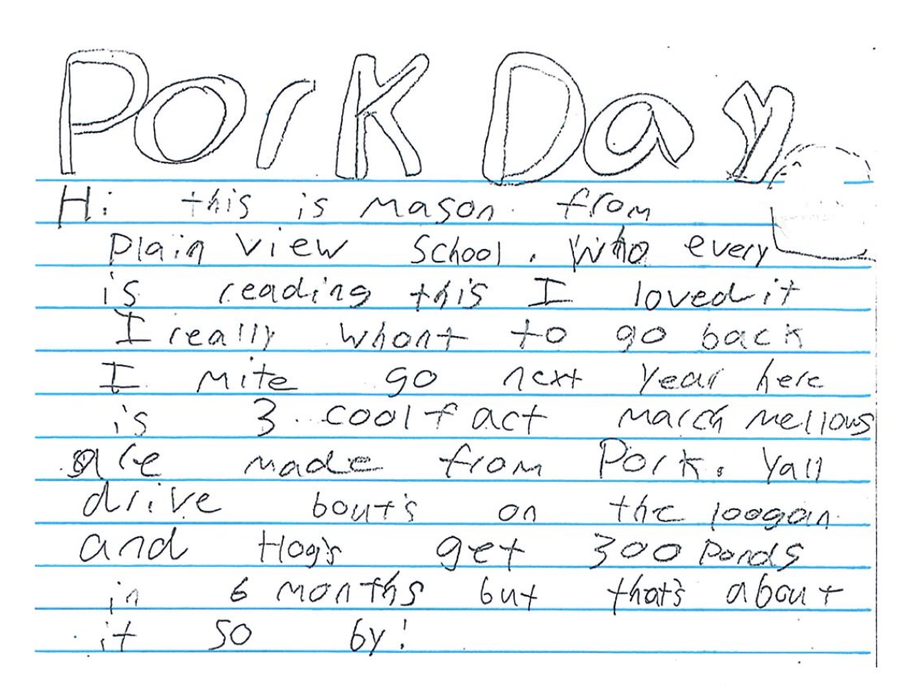 Pork Day
Hi this is Mason. from
Plain View School. Who every
is reading this I loved it
I really whont to go back
I mite go next year here
is 3 cool fact march mellows
are made from Pork. Yall
drive bout's on the loogan
and Hog's get 300 Ponds
in 6 months but that's about
it so by!